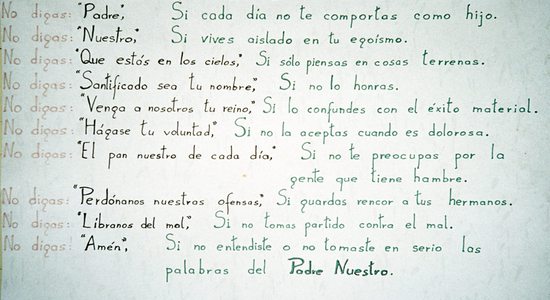 No digas: "Padre", Si cada día no te comportas como hijo.
No digas: "Nuestro", Si vives aislado en tu egoísmo.
No digas: "Que estás en los cielos," Si sólo piensas en cosas terrenas.
No digas: "Santificado sea tu nombre," Si no lo honras.
No digas: "Venga a nosotros tu reino," Si lo confundes con el éxito material.
No digas: "Hágase tu voluntad," Si no la aceptas cuando es dolorosa.
No digas: "El pan nuestro de cada día," Si no te preocupas por la
gente que tiene hambre.
No digas: "Perdónanos nuestras ofensas," Si guardas rencor a tus hermanos.
No digas: "Líbranos del mal," Si no tomas partido contra el mal.
No digas: "Amén", Si no entendiste o no tomaste en serio las
palabras del Padre Nuestro.